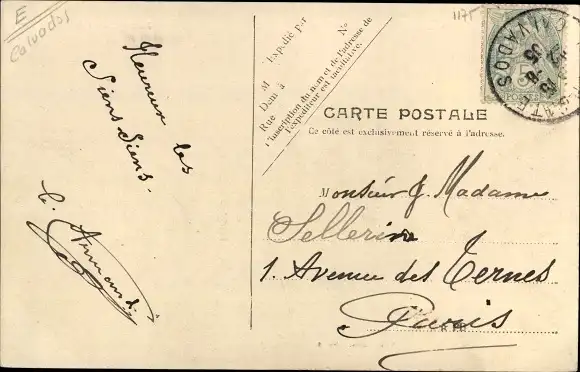 E
Calvados
1175
Heureux les
Siens Siens.
C. Armand
M
Expédié par
Demt à
Rue
No
L'inscription du nom et de l'adresse de
l'expéditeur est facultative.
CARTE POSTALE
Ce côté est exclusivement réservé à l'adresse.
CALVADOS
Monsieur & Madame
Sellerin
1. Avenue des Ternes
Paris